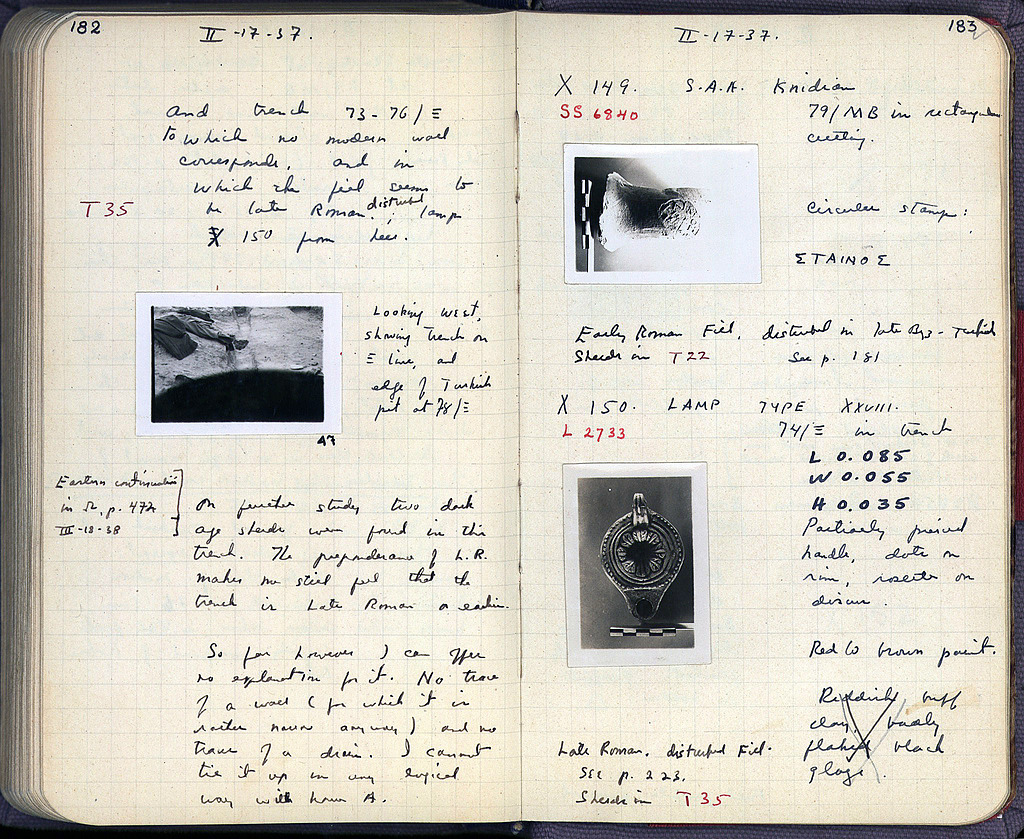 182
II-17-37.
and trench 73-76/Ξ
to which no modern wall
corresponds, and in
which the fill seems to
T 35
be late Roman, disturbed; lamp
X 150 from here.
Looking west,
showing trench on
Ξ line, and
edge of Turkish
pit at 78/Ξ
47
Eastern continuation
in Ω, p. 472
III-18-38
On further study two dark
age sherds were found in this
trench. The preponderance of L.R.
makes me still feel that the
trench is Late Roman or earlier.
So far however I can offer
no explanation for it. No trace
of a wall (for which it is
rather narrow anyway) and no
trace of a drain. I cannot
tie it up in any logical
way with house A.
183
II-17-37.
X 149. S.A.H. Knidian
SS 6840
79/MB in rectangular
cutting.
Circular stamp:
ΣΤΑΙΝΟΣ
Early Roman Fill, disturbed in late Byz-Turkish
Sherds in T 22 See p. 181
X 150. LAMP TYPE XXVIII.
L 2733
74/Ξ in trench
L 0.085
W 0.055
H 0.035
Partially pierced
handle, dots on
rim, rosette on
discus.
Red to brown paint.
Reddish buff
clay, badly
flaked black
glaze.
Late Roman, disturbed Fill.
See p. 223.
Sherds in T 35